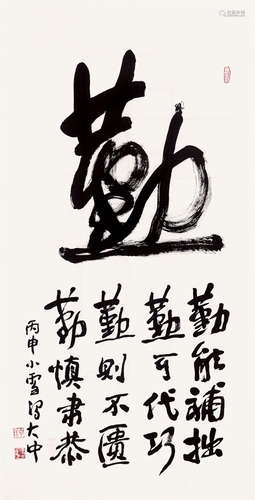 勤
勤能補拙
勤可代巧
勤則不匱
勤慎肅恭
丙申小雪
大中